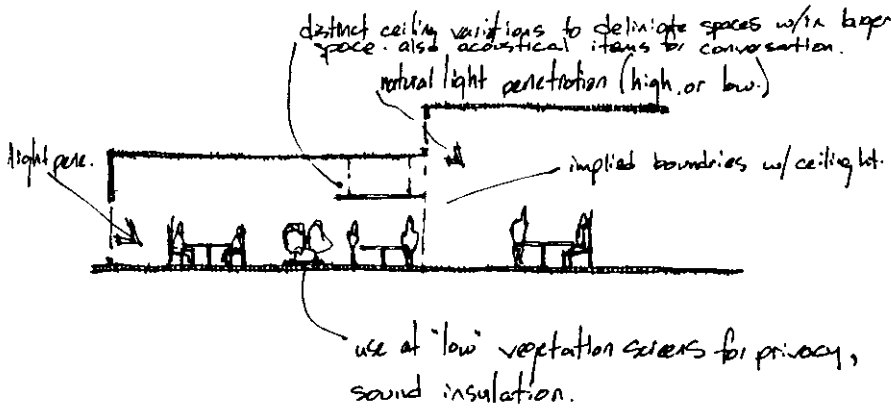 distinct ceiling varitions to deliniate spaces w/in larger
space. also acoustical items for conversation.
natural light penetration (high, or low.)
light pene.
implied boundries w/ ceiling ht.
use of "low" vegetation screens for privacy,
sound insulation.